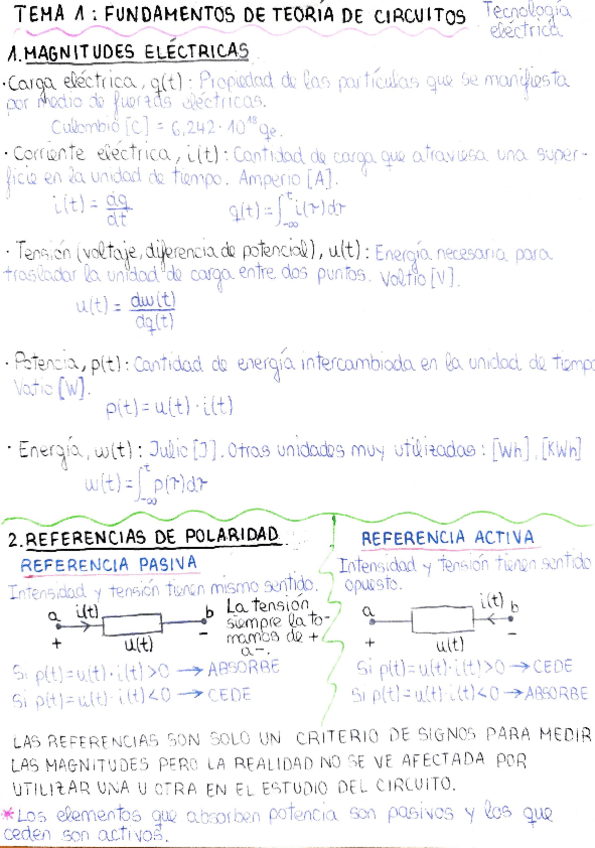 TEMA 1: FUNDAMENTOS DE TEORÍA DE CIRCUITOS
Tecnología
eléctrica
1. MAGNITUDES ELÉCTRICAS
· Carga eléctrica, q(t): Propiedad de las partículas que se manifiesta
por medio de fuerzas eléctricas.
Culombio [C] = 6,242·10¹⁸ qe.
· Corriente eléctrica, i(t): Cantidad de carga que atraviesa una super-
ficie en la unidad de tiempo. Amperio [A].
i(t) = dq/dt q(t) = ∫_{-∞}^{t} i(τ)dτ
· Tensión (voltaje, diferencia de potencial), u(t): Energía necesaria para
trasladar la unidad de carga entre dos puntos. Voltio [V].
u(t) = dw(t)/dq(t)
· Potencia, p(t): Cantidad de energía intercambiada en la unidad de tiempo
Vatio [W].
p(t) = u(t)·i(t)
· Energía, w(t): Julio [J]. Otras unidades muy utilizadas: [Wh], [KWh]
w(t) = ∫_{-∞}^{t} p(τ)dτ
2. REFERENCIAS DE POLARIDAD
REFERENCIA PASIVA
Intensidad y tensión tienen mismo sentido.
a i(t) b
+ u(t) -
La tensión
siempre la to-
mamos de +
a -.
Si p(t)=u(t)·i(t)>0 → ABSORBE
Si p(t)=u(t)·i(t)<0 → CEDE
REFERENCIA ACTIVA
Intensidad y tensión tienen sentido
opuesto.
a i(t) b
+ u(t) -
Si p(t)=u(t)·i(t)>0 → CEDE
Si p(t)=u(t)·i(t)<0 → ABSORBE
LAS REFERENCIAS SON SOLO UN CRITERIO DE SIGNOS PARA MEDIR
LAS MAGNITUDES PERO LA REALIDAD NO SE VE AFECTADA POR
UTILIZAR UNA U OTRA EN EL ESTUDIO DEL CIRCUITO.
*Los elementos que absorben potencia son pasivos y los que
ceden son activos.